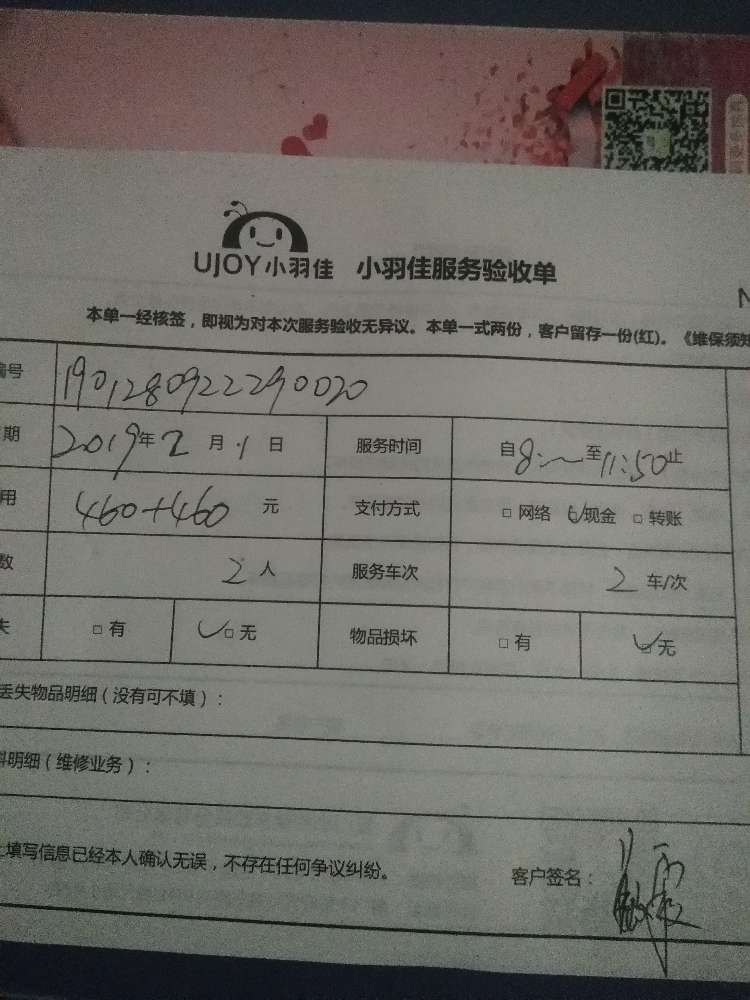 UJOY小羽佳 小羽佳服务验收单
N
本单一经核签，即视为对本次服务验收无异议。本单一式两份，客户留存一份(红)。《维保须知
编号 1901280922290020
期 2019年2月1日 服务时间 自8:~至11:50止
用 460+460 元 支付方式 □网络 ☑现金 □转账
数 2人 服务车次 2车/次
失 □有 ☑无 物品损坏 □有 ☑无
丢失物品明细（没有可不填）：
料明细（维修业务）：
上填写信息已经本人确认无误，不存在任何争议纠纷。 客户签名：